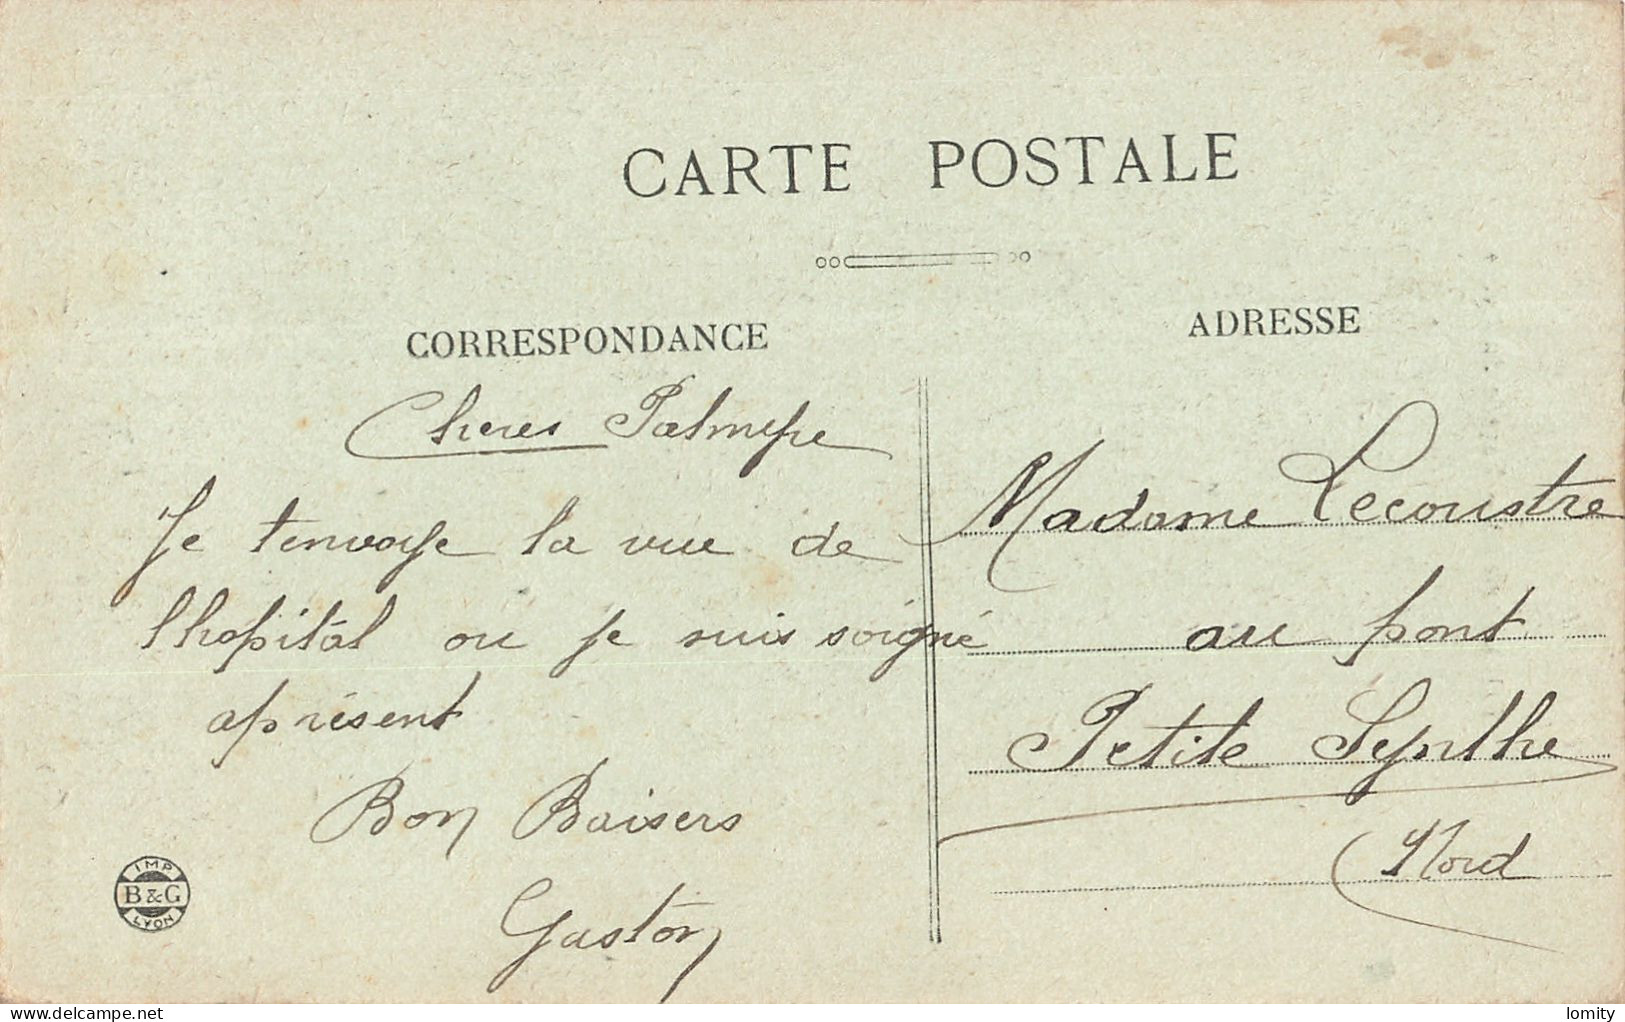 CARTE POSTALE
CORRESPONDANCE
Cheres Palmyre
Je tenvoye la vue de
lhopitâl ou je suis soigné
aprésent
Bon Baisers
Gaston
IMP
B&G
LYON
ADRESSE
Madame Lecoustre
au pont
Petite Synthe
Nord
delcampe.net
lomity